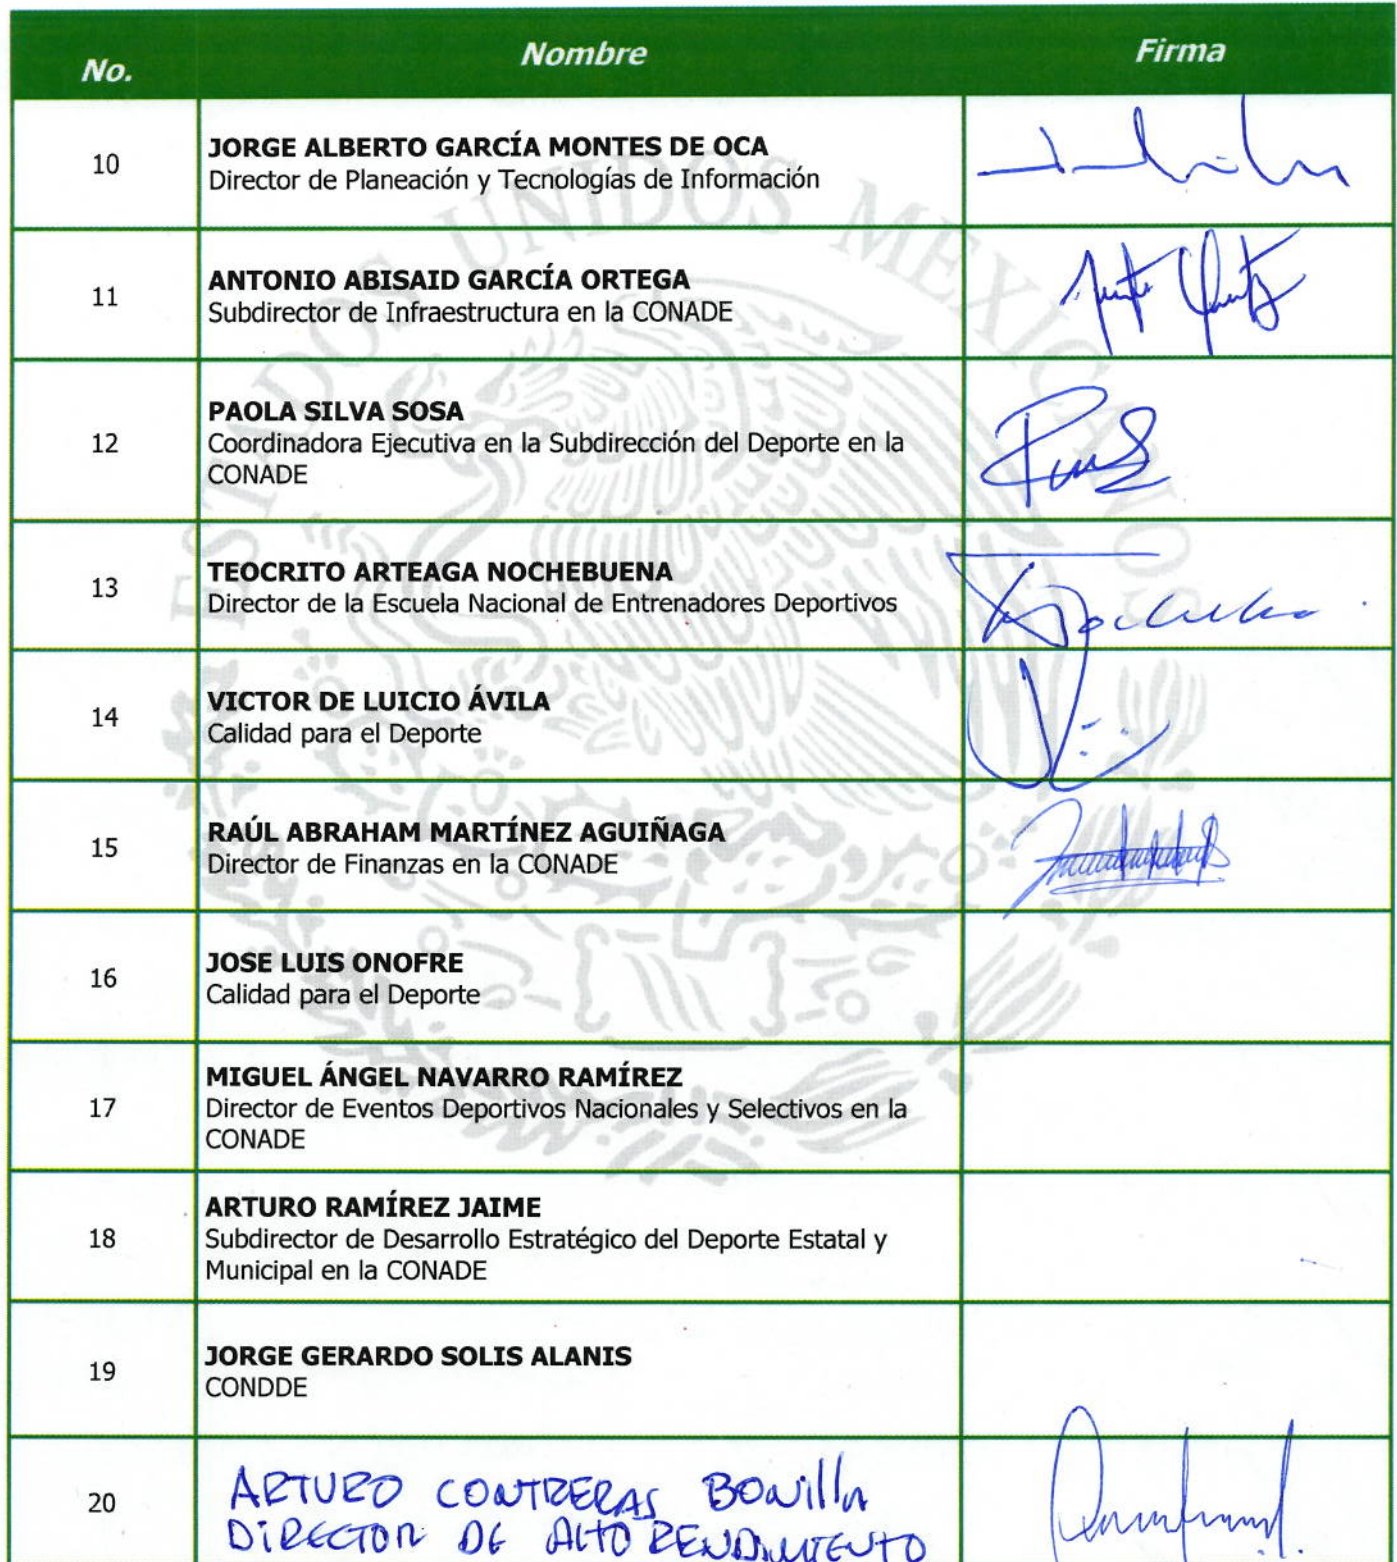 No. Nombre Firma
10
JORGE ALBERTO GARCÍA MONTES DE OCA
Director de Planeación y Tecnologías de Información
11
ANTONIO ABISAID GARCÍA ORTEGA
Subdirector de Infraestructura en la CONADE
12
PAOLA SILVA SOSA
Coordinadora Ejecutiva en la Subdirección del Deporte en la
CONADE
13
TEOCRITO ARTEAGA NOCHEBUENA
Director de la Escuela Nacional de Entrenadores Deportivos
14
VICTOR DE LUICIO ÁVILA
Calidad para el Deporte
15
RAÚL ABRAHAM MARTÍNEZ AGUIÑAGA
Director de Finanzas en la CONADE
16
JOSE LUIS ONOFRE
Calidad para el Deporte
17
MIGUEL ÁNGEL NAVARRO RAMÍREZ
Director de Eventos Deportivos Nacionales y Selectivos en la
CONADE
18
ARTURO RAMÍREZ JAIME
Subdirector de Desarrollo Estratégico del Deporte Estatal y
Municipal en la CONADE
19
JORGE GERARDO SOLIS ALANIS
CONDDE
20
ARTURO CONTRERAS BONILLA
DIRECTOR DE ALTO RENDIMIENTO
ESTADOS UNIDOS MEXICANOS